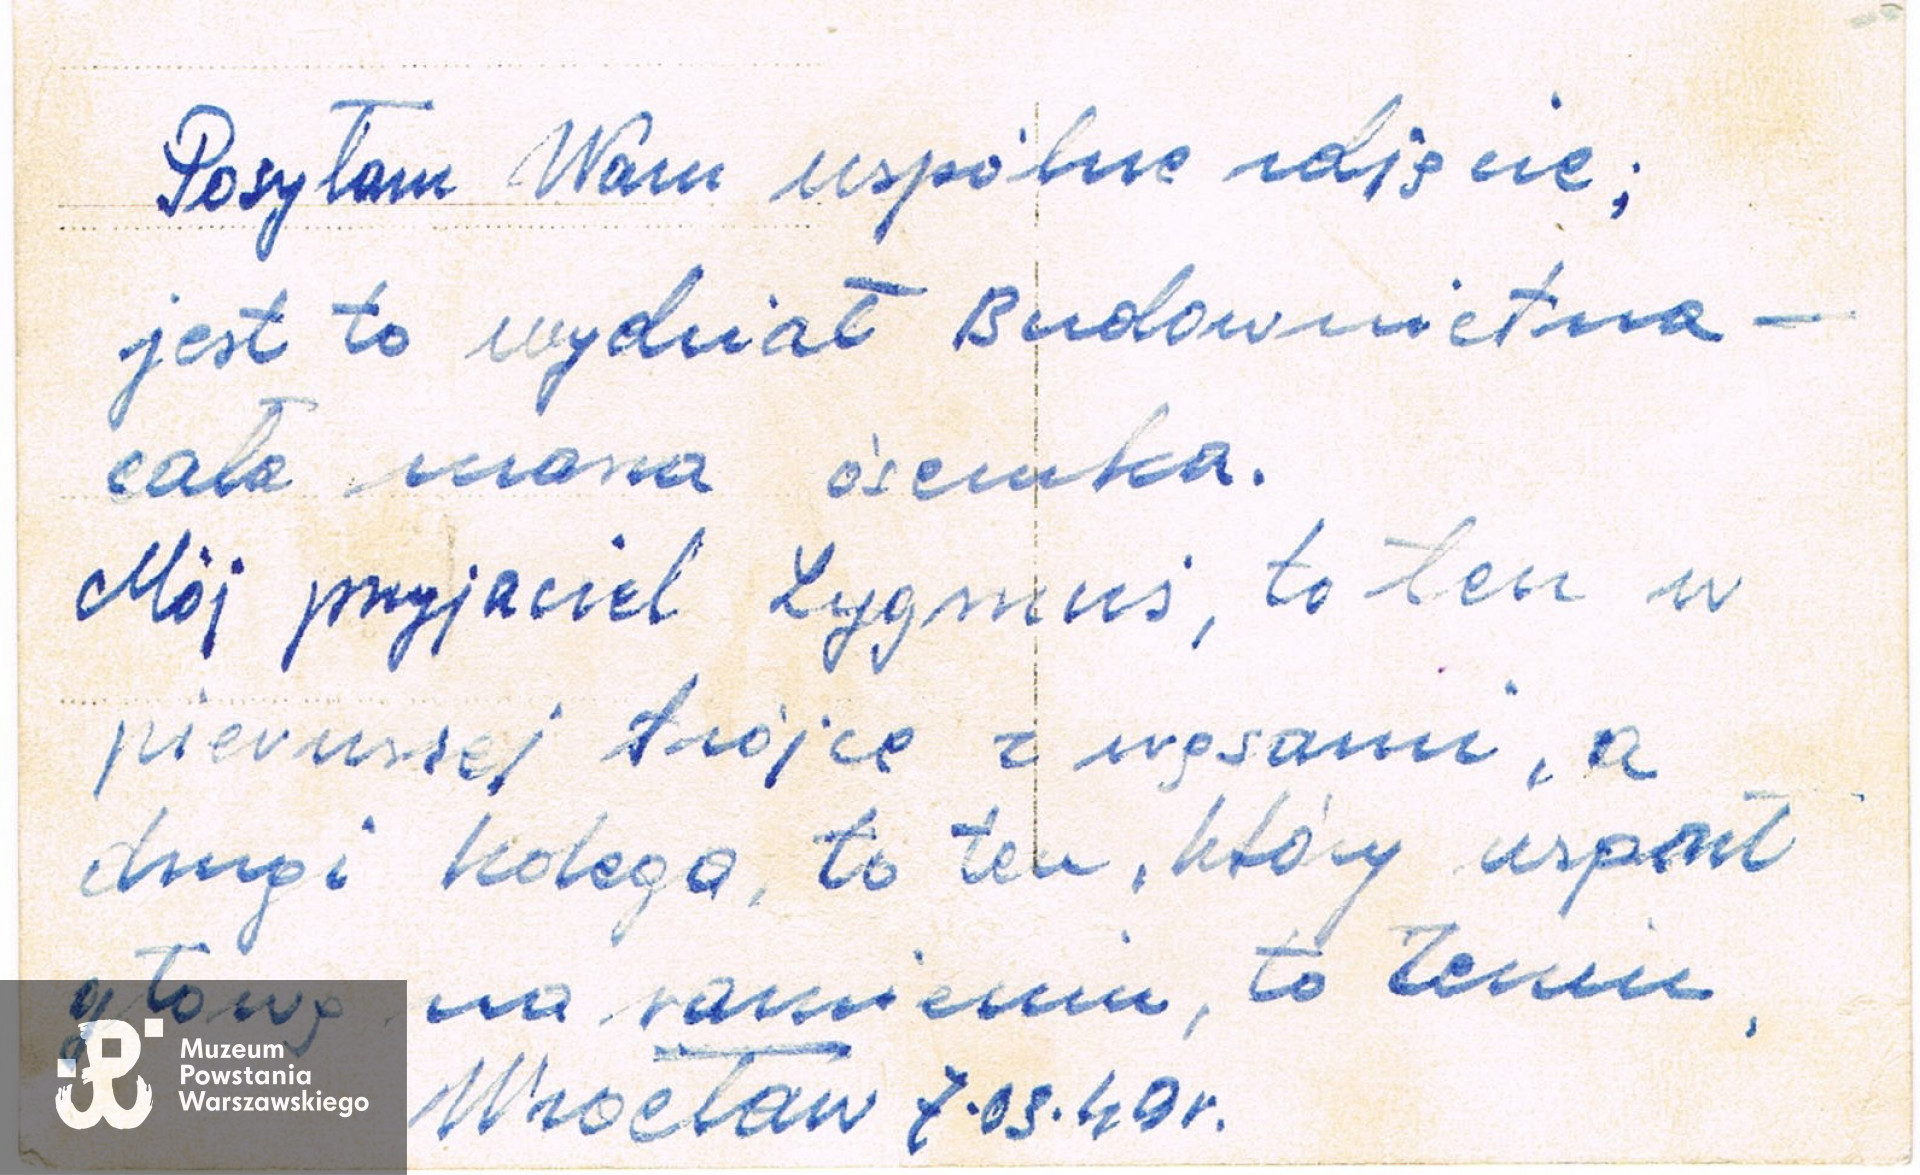 Posyłam Wam wspólne zdjęcie;
jest to wydział Budownictwa —
cała nasza ósemka.
Mój przyjaciel Zygmuś, to ten w
pierwszej trójce z wąsami, a
drugi kolega, to ten, który wsparł
głowę na ramieniu, to
Wrocław 7.03.49r.
Muzeum
Powstania
Warszawskiego